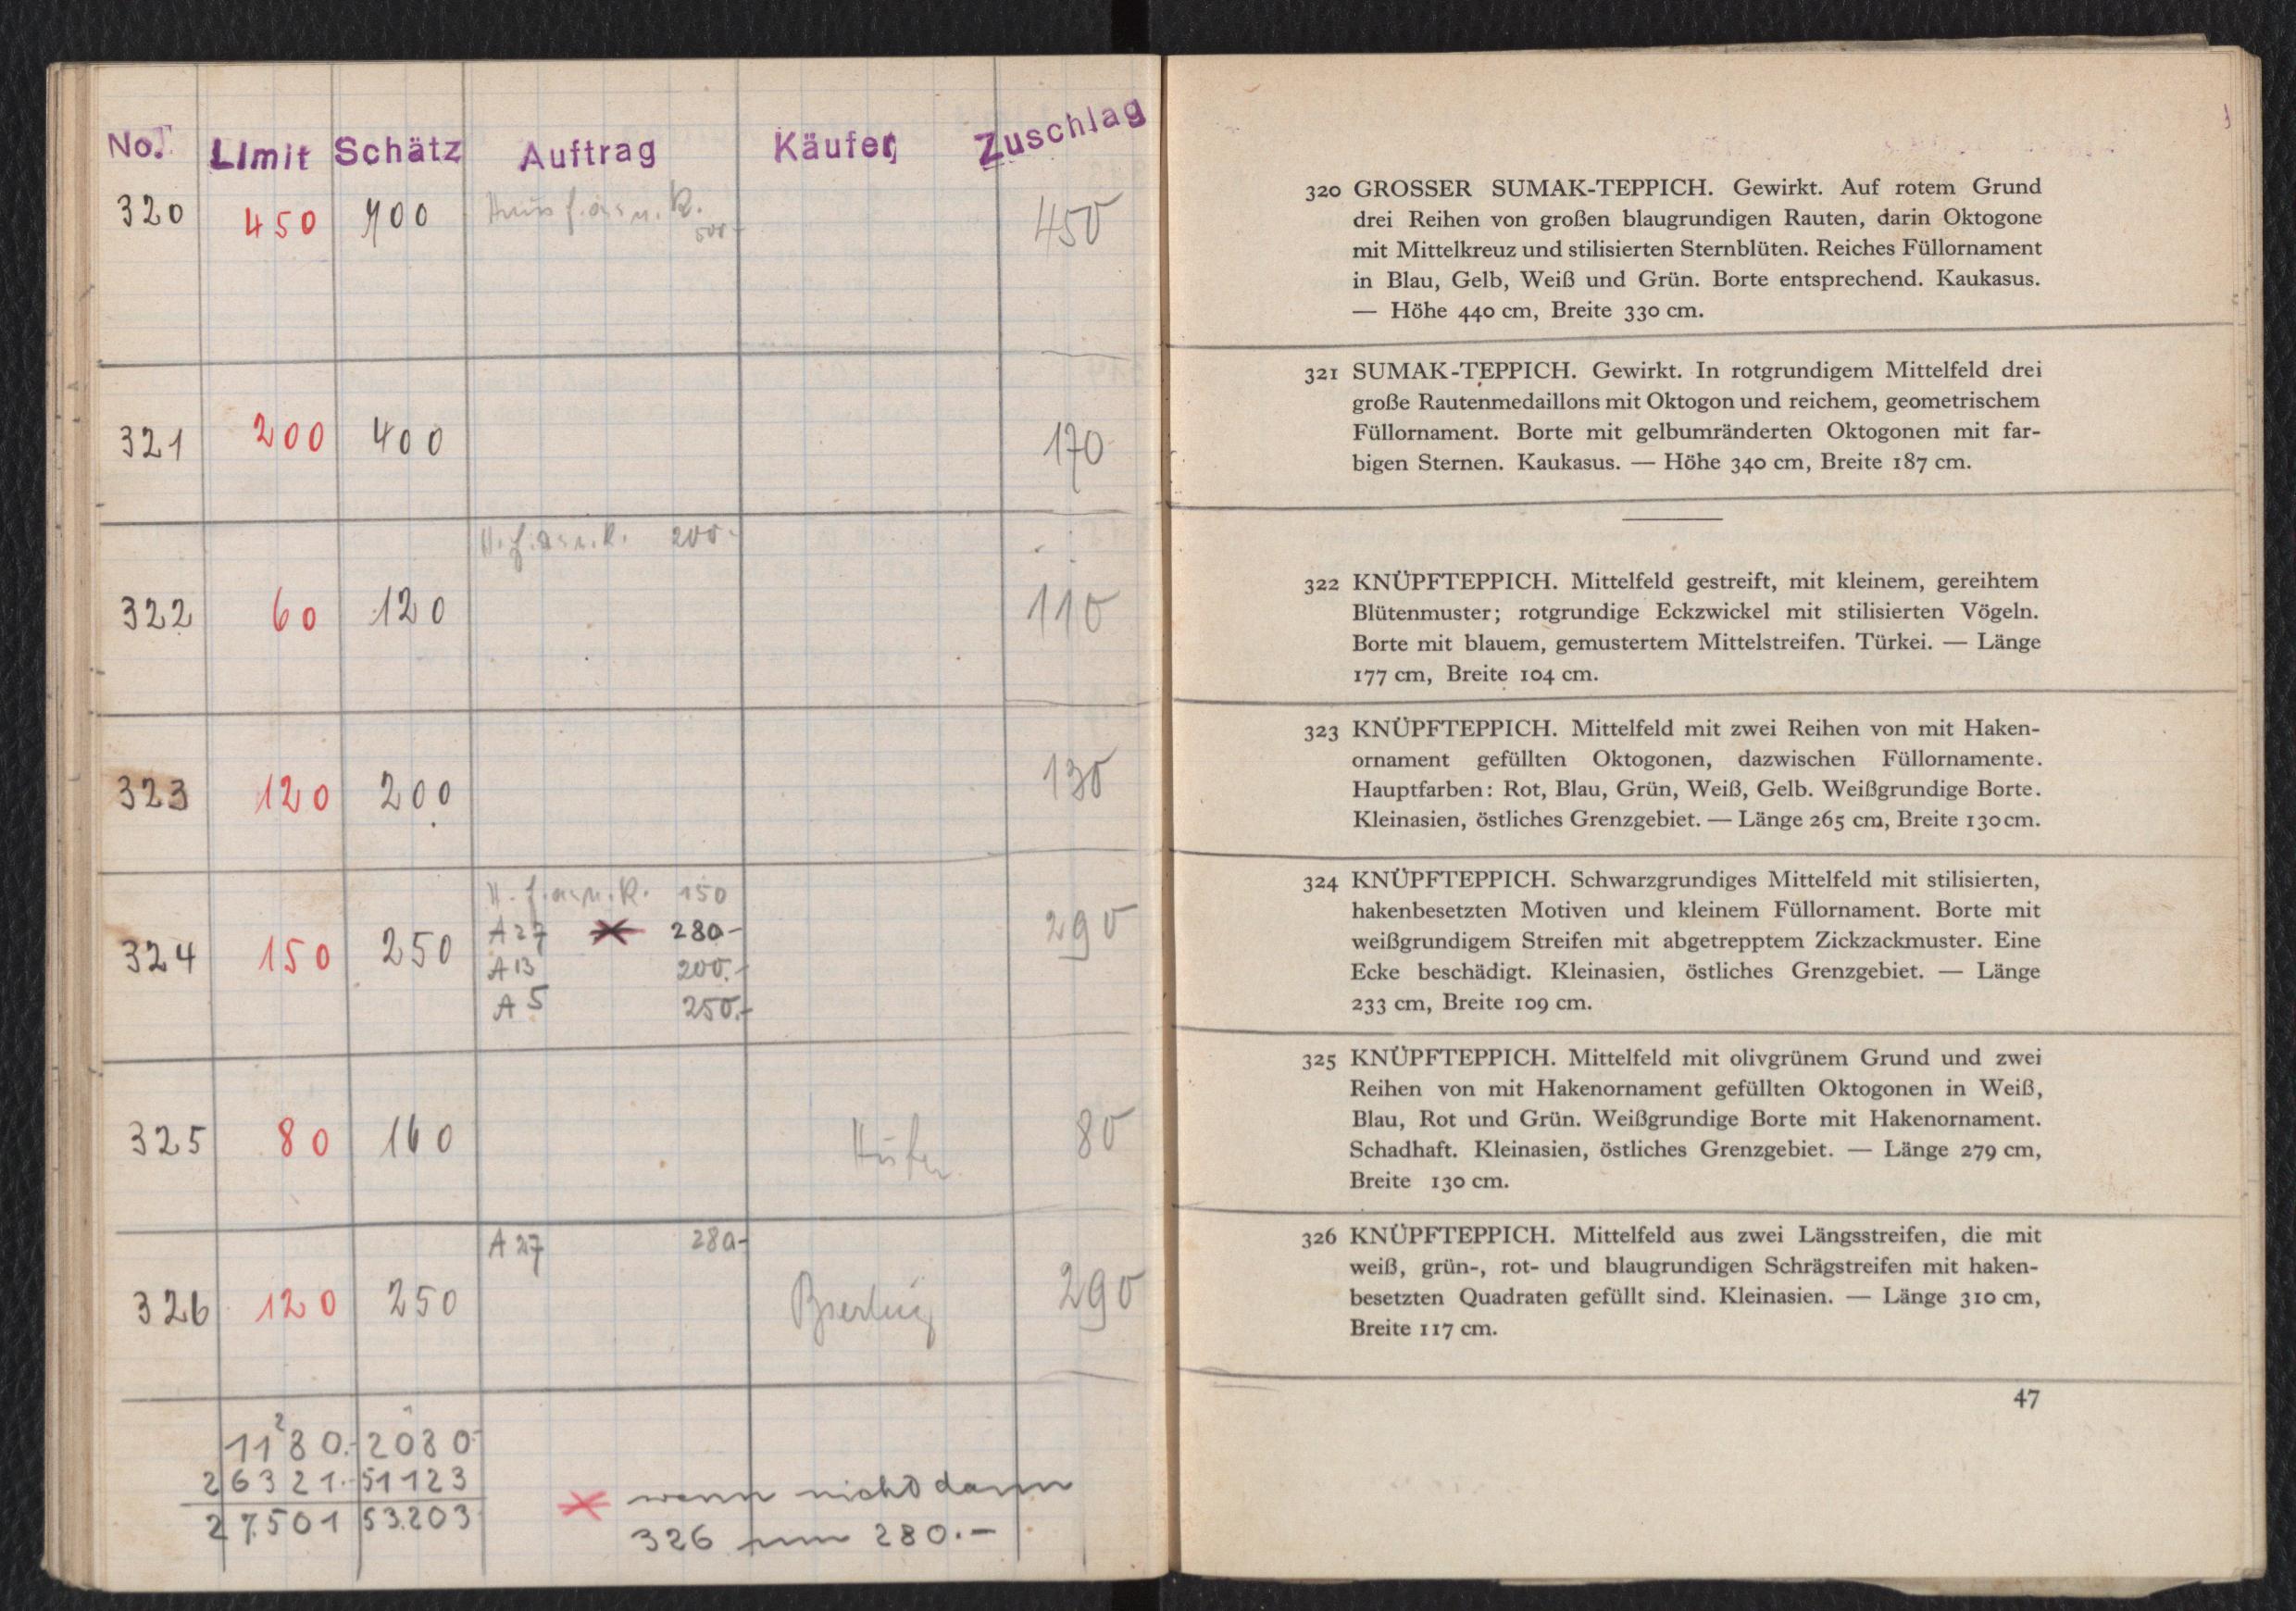 No. Limit Schätz Auftrag Käufer Zuschlag
320 450 700 450
321 200 400 170
200.-
322 60 120 110
323 120 200 130
150
A 27 × 280-
324 150 250 290
A 13 200.-
A 5 250.-
325 80 160 80
A 27 280-
326 120 250 290
1180.- 2080.-
26321.- 51123
27.501 53.203
× wenn nicht dann
326 um 280.-
320 GROSSER SUMAK-TEPPICH. Gewirkt. Auf rotem Grund
drei Reihen von großen blaugrundigen Rauten, darin Oktogone
mit Mittelkreuz und stilisierten Sternblüten. Reiches Füllornament
in Blau, Gelb, Weiß und Grün. Borte entsprechend. Kaukasus.
— Höhe 440 cm, Breite 330 cm.
321 SUMAK-TEPPICH. Gewirkt. In rotgrundigem Mittelfeld drei
große Rautenmedaillons mit Oktogon und reichem, geometrischem
Füllornament. Borte mit gelbumränderten Oktogonen mit far-
bigen Sternen. Kaukasus. — Höhe 340 cm, Breite 187 cm.
322 KNÜPFTEPPICH. Mittelfeld gestreift, mit kleinem, gereihtem
Blütenmuster; rotgrundige Eckzwickel mit stilisierten Vögeln.
Borte mit blauem, gemustertem Mittelstreifen. Türkei. — Länge
177 cm, Breite 104 cm.
323 KNÜPFTEPPICH. Mittelfeld mit zwei Reihen von mit Haken-
ornament gefüllten Oktogonen, dazwischen Füllornamente.
Hauptfarben: Rot, Blau, Grün, Weiß, Gelb. Weißgrundige Borte.
Kleinasien, östliches Grenzgebiet. — Länge 265 cm, Breite 130 cm.
324 KNÜPFTEPPICH. Schwarzgrundiges Mittelfeld mit stilisierten,
hakenbesetzten Motiven und kleinem Füllornament. Borte mit
weißgrundigem Streifen mit abgetrepptem Zickzackmuster. Eine
Ecke beschädigt. Kleinasien, östliches Grenzgebiet. — Länge
233 cm, Breite 109 cm.
325 KNÜPFTEPPICH. Mittelfeld mit olivgrünem Grund und zwei
Reihen von mit Hakenornament gefüllten Oktogonen in Weiß,
Blau, Rot und Grün. Weißgrundige Borte mit Hakenornament.
Schadhaft. Kleinasien, östliches Grenzgebiet. — Länge 279 cm,
Breite 130 cm.
326 KNÜPFTEPPICH. Mittelfeld aus zwei Längsstreifen, die mit
weiß, grün-, rot- und blaugrundigen Schrägstreifen mit haken-
besetzten Quadraten gefüllt sind. Kleinasien. — Länge 310 cm,
Breite 117 cm.
47